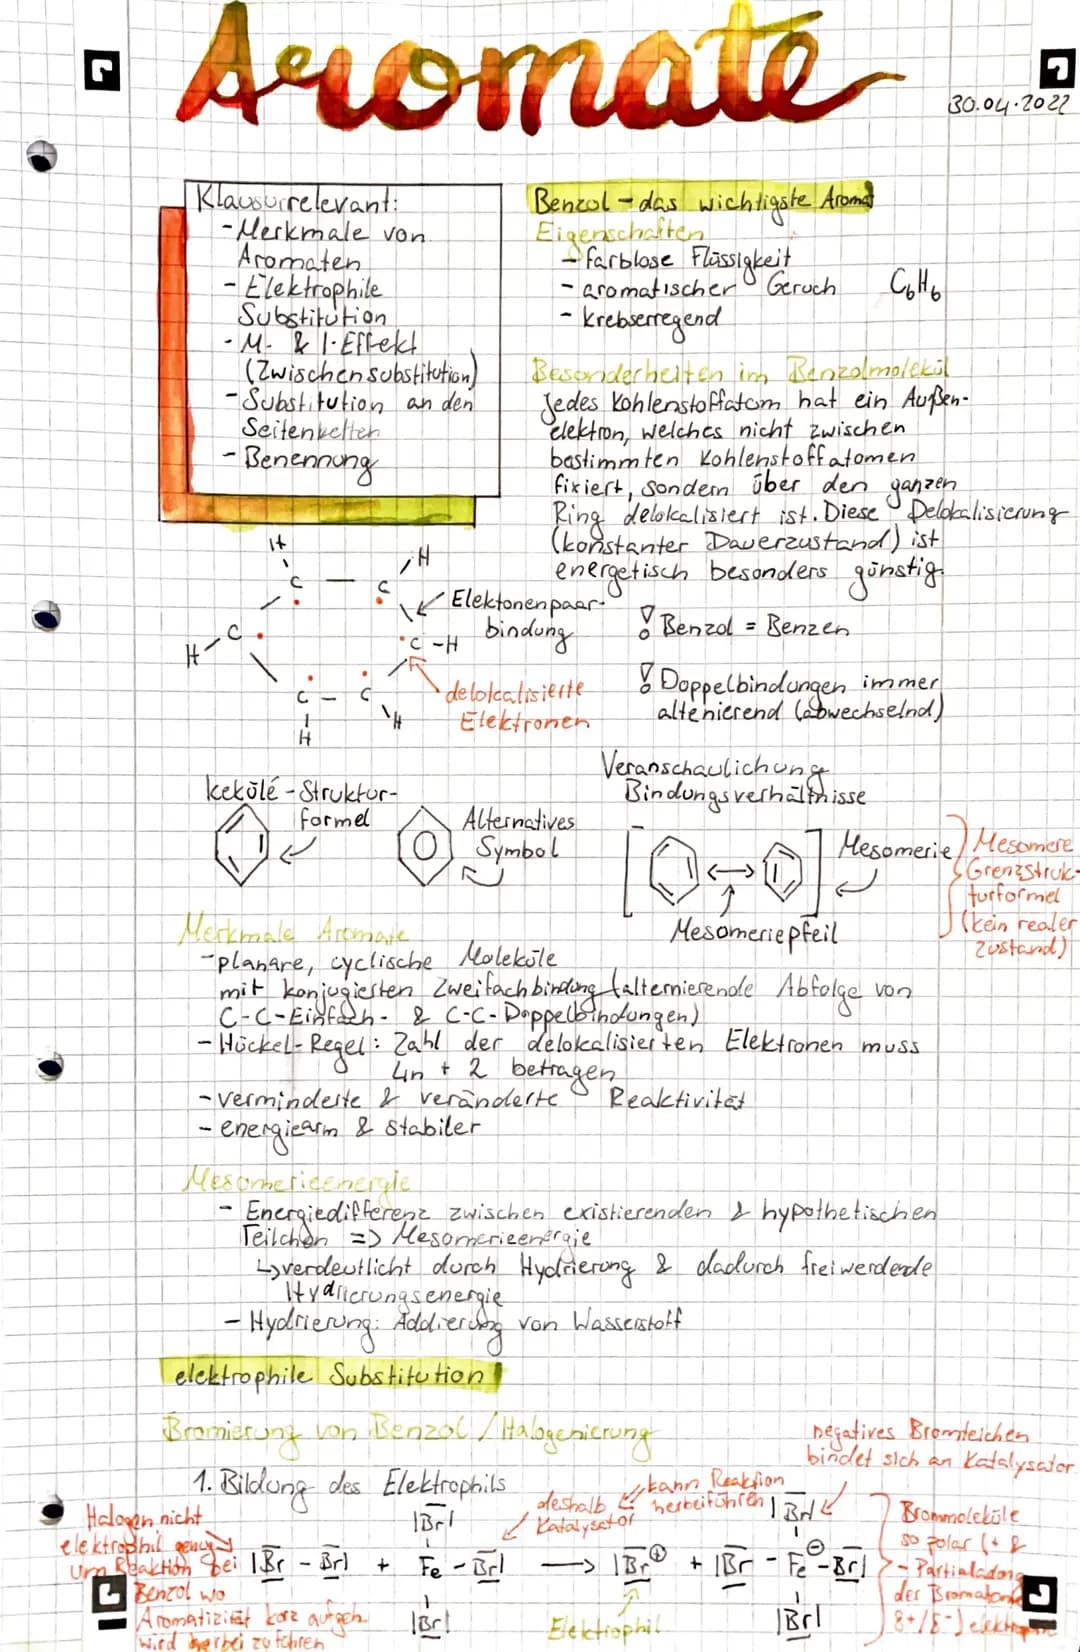 Aromate
30.04.2022
Klausurrelevant:
- Merkmale von
Aromaten
- Elektrophile
Substitution
- M- & I-Effekt
(Zwischensubstitution)
- Substitution an den
Seitenketten
- Benennung
Benzol - das wichtigste Aromat
Eigenschaften
- farblose Flüssigkeit
- aromatischer Geruch C₆H₆
- krebserregend
Besonderheiten im Benzolmolekül
Jedes Kohlenstoffatom hat ein Außen-
elektron, welches nicht zwischen
bestimmten Kohlenstoffatomen
fixiert, sondern über den ganzen
Ring delokalisiert ist. Diese Delokalisierung
(konstanter Dauerzustand) ist
energetisch besonders günstig.
H
H
C
C
C
C - H
C - C
H
H
H
Elektonenpaar-
bindung
delokalisierte
Elektronen
! Benzol = Benzen
! Doppelbindungen immer
altenierend (abwechselnd)
Kekülé - Struktur-
formel
Alternatives
Symbol
Veranschaulichung
Bindungsverhältnisse
Mesomerie
Mesomeriepfeil
Mesomere
Grenzstruk-
turformel
(kein realer
zustand)
Merkmale Aromate
- planare, cyclische Moleküle
mit konjugierten Zweifachbindung (alternierende Abfolge von
C-C-Einfach- & C-C-Doppelbindungen)
- Hückel-Regel: Zahl der delokalisierten Elektronen muss
4n + 2 betragen
- verminderte & veränderte Reaktivität
- energiearm & stabiler
Mesomerieenergie
- Energiedifferenz zwischen existierenden & hypothetischen
Teilchen => Mesomerieenergie
↳ verdeutlicht durch Hydrierung & dadurch freiwerdende
Hydrierungsenergie
- Hydrierung: Addierung von Wasserstoff
elektrophile Substitution
Bromierung von Benzol / Halogenierung
1. Bildung des Elektrophils
negatives Bromteichen
bindet sich an Katalysator
kann Reaktion
herbeiführen
deshalb
Katalysator
Halogen nicht
elektrophil genug
um Reaktion bei
Benzol wo
Aromatizität kurz aufgeh.
wird herbei zu führen
|Br|
|Br|
|Br - Br| + Fe - Br| → |Br⊕ + |Br - Fe⊖ - Br|
|Br|
|Br|
Elektrophil
Brommoleküle
so polar (+ &
- Partialladung
der Bromatome
δ+/δ-)